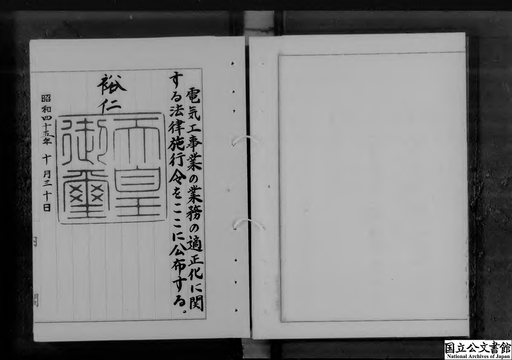 電気工事業の業務の適正化に関
する法律施行令をここに公布する。
裕仁
天皇
御璽
昭和四十五年十月三十日
国立公文書館
National Archives of Japan